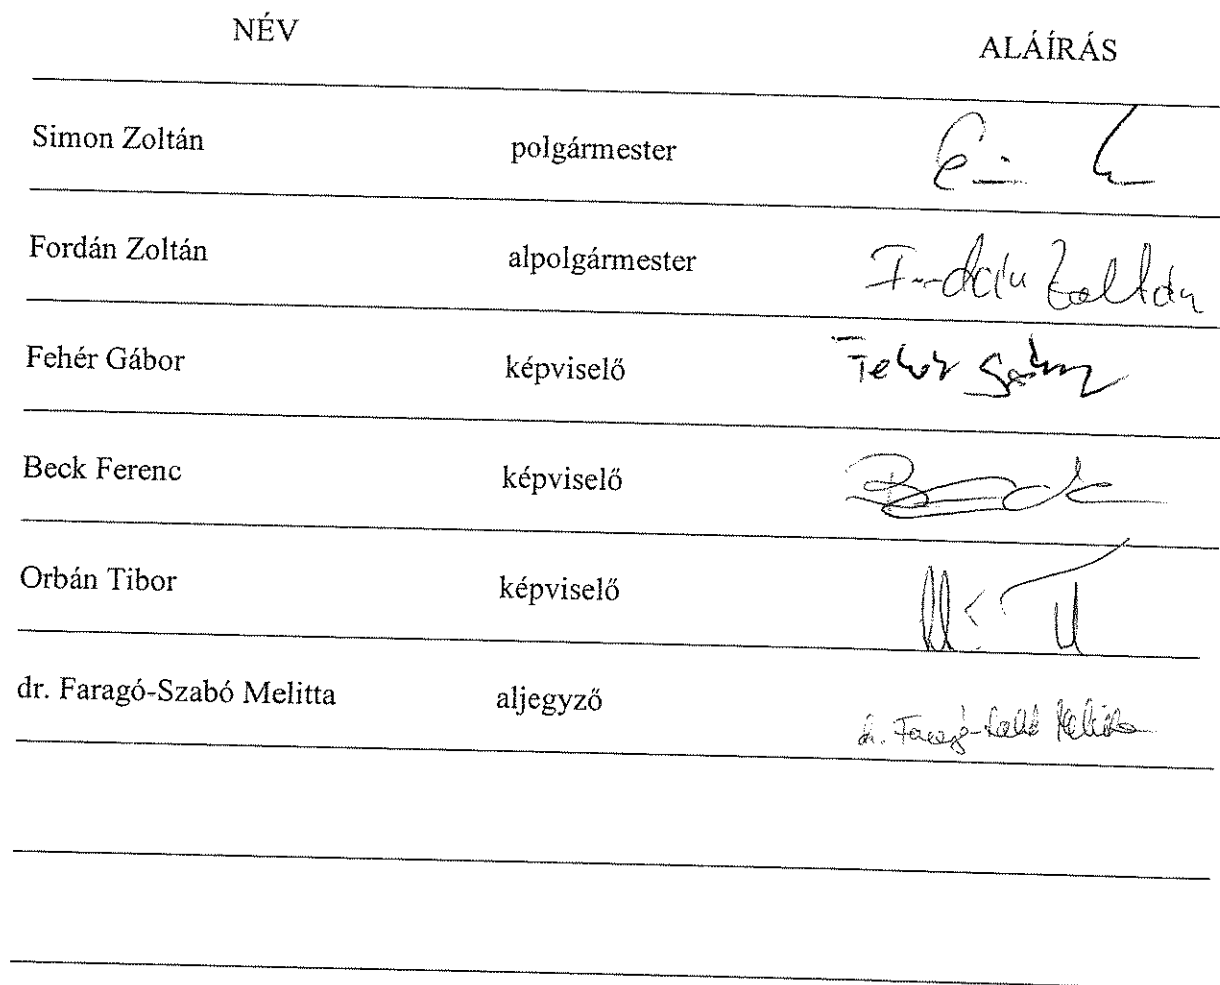 NÉV ALÁÍRÁS
Simon Zoltán polgármester
Fordán Zoltán alpolgármester Fordán Zoltán
Fehér Gábor képviselő Fehér Gábor
Beck Ferenc képviselő Beck
Orbán Tibor képviselő
dr. Faragó-Szabó Melitta aljegyző dr. Faragó-Szabó Melitta